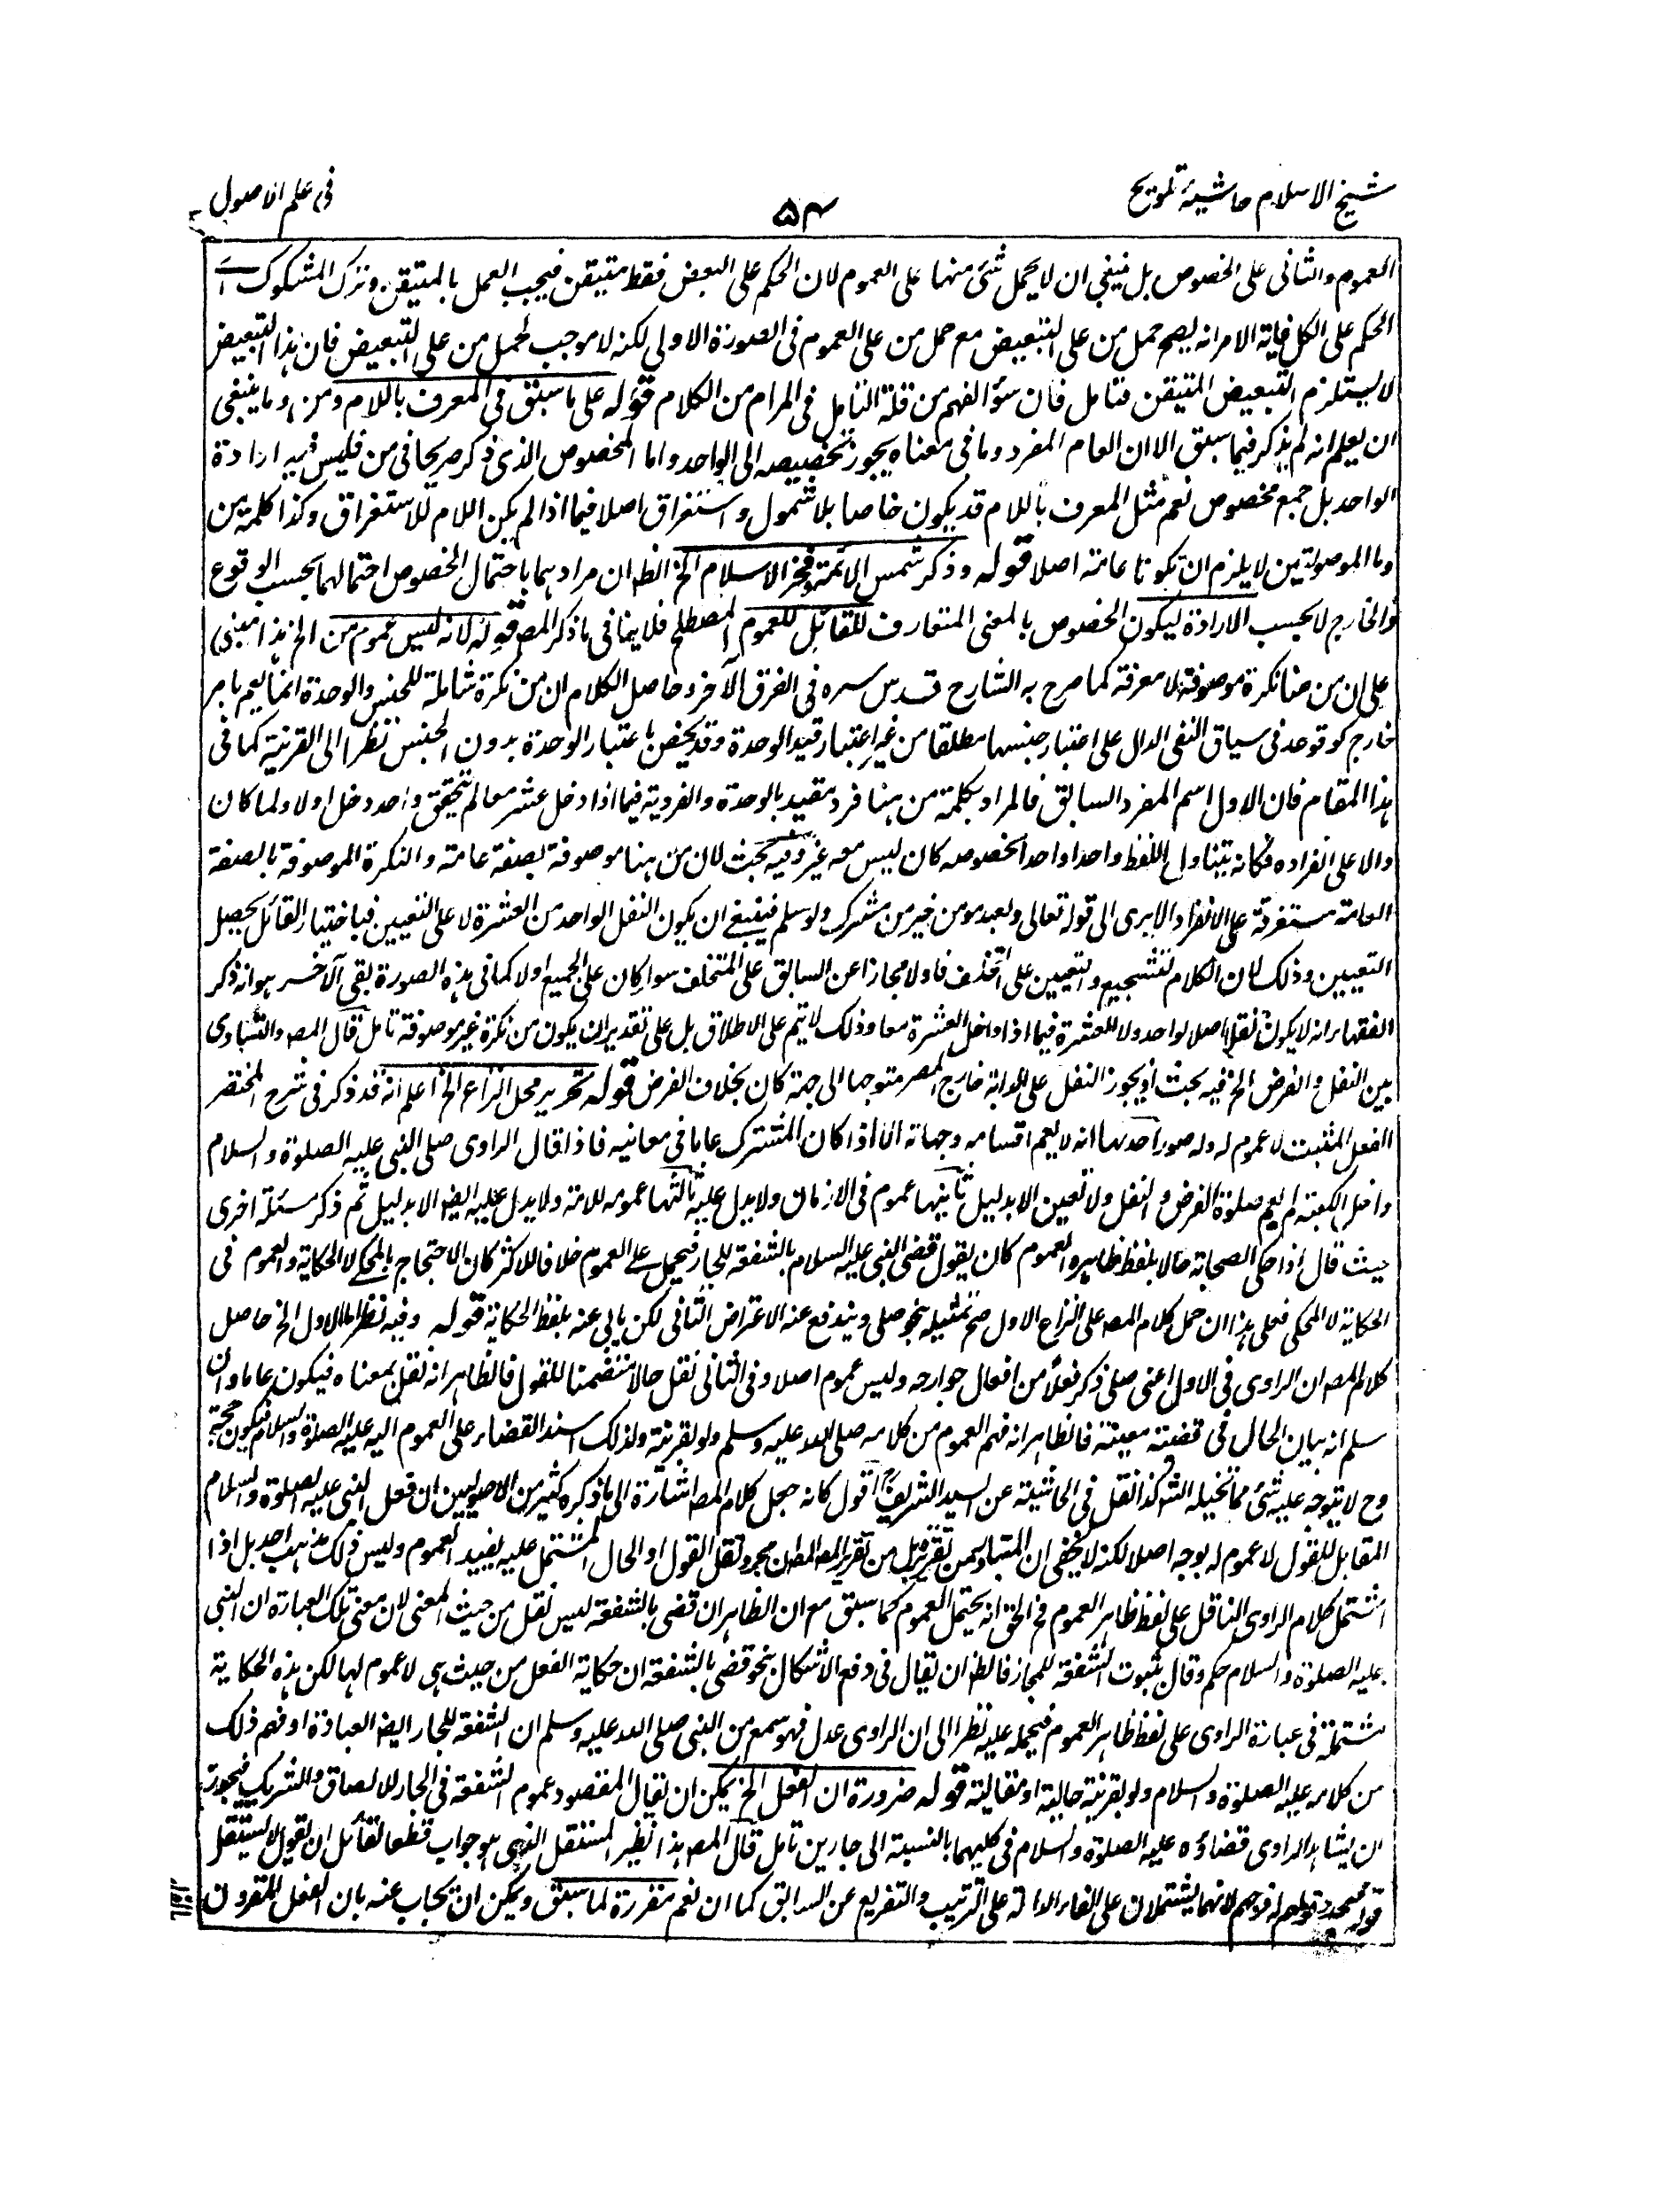 شيخ الاسلام حاشية تلويح
۵۴
فى علم الاصول
العموم والثانى على الخصوص بل ينبغي ان لا يحمل شئ منهما على العموم لان الحكم على البعض فقط متيقن فيجب العمل بالمتيقن وترك المشكوك
الحكم على الكل غاية الامر انه يصح حمل من على التبعيض مع حمل من على العموم فى الصورة الاولى لكنه لا موجب لحمل من على التبعيض فان هذا التبعيض
لا يستلزم التبعيض المتيقن فتامل فان سوء الفهم من قلة التامل فى المرام من الكلام قوله على ما سبق فى المعرف باللام ومن وما ينبغى
ان يعلم انه لم يذكر فيما سبق الا ان العام المفرد وما فى معناه يجوز تخصيصه الى الواحد واما المخصوص الذى ذكر صريحا فى من فليس فيه ارادة
الواحد بل جمع مخصوص نعم مثل المعرف باللام قد يكون خاصا بلا شمول واستغراق اصلا فيما اذا لم يكن اللام للاستغراق وكذا كلمة من
وما الموصولتين لا يلزم ان تكونا عامة اصلا قوله وذكر شمس الائمة وفخر الاسلام الخ الظ ان مرادهما باحتمال الخصوص احتمالهما بحسب الوقوع
والخارج لا بحسب الارادة ليكون الخصوص بالمعنى المتعارف للقائل للعموم المصطلح فلا ينافى ما ذكر المص قوله لانه ليس عموم من الخ هذا مبنى
على ان من هنا نكرة موصوفة لا معرفة كما صرح به الشارح قدس سره فى الفرق الآخر وحاصل الكلام ان من نكرة شاملة للجنس والوحدة انما يعم بامر
خارج كوقوعه فى سياق النفى الدال على اعتبار جنسها مطلقا من غير اعتبار قيد الوحدة وقد يخص باعتبار الوحدة بدون الجنس نظرا الى القرينة كما فى
هذا المقام فان الاول اسم المفرد السابق فالمراد بكلمة من هنا فرد مقيد بالوحدة والفردية فيما اذا دخل عشر معا لم يتحقق واحد دخل اولا ولما كان
والا على انفراده فكانه يتناول اللفظ واحدا واحدا لخصوصه كان ليس معه غيره وفيه بحث لان من هنا موصوفة بصفة عامة والنكرة الموصوفة بالصفة
العامة مستغرقة على الانفراد الا يرى الى قوله تعالى ولعبد مومن خير من مشرك ولو سلم فينبغى ان يكون النفل الواحد من العشرة لا على التعيين فباختيار القائل يحصل
التعيين وذلك لان الكلام لتشجيع والتعيين على فاولا مجازا عن السابق على المتخلف سواء كان على الجميع اولا كما فى هذه الصورة بقى آخر هو انه ذكر
الفقهاء انه لا يكون نفل اصلا لواحد ولا للعشرة فيما اذا دخل العشرة معا وذلك لا يتم على الاطلاق بل على تقدير ان يكون من نكرة غير موصوفة تامل قال المص والتساوى
بين النفل والفرض الخ فيه بحث اذ يجوز النفل على الدابة خارج المصر متوجها الى جهة كان بخلاف الفرض قوله تحرير محل النزاع الخ اعلم انه قد ذكر فى شرح المختصر
الفعل المثبت لا عموم له وله صور احدها انه لا يعم اقسامه وجهاته الا اذا كان المشترك عاما فى معانيه فاذا قال الراوى صلى النبى عليه الصلوة والسلام
داخل الكعبة لم يعم صلوة الفرض والنفل ولا تعين الا بدليل ثانيها عموم فى الازمان ولا يدل عليه ثالثها عمومه للامة ولا يدل عليه ايضا الا بدليل ثم ذكر مسئلة اخرى
حيث قال اذا حكى الصحابة حالا بلفظ ظاهره العموم كان يقول قضى النبى عليه السلام بالشفعة للجار فيحمل على العموم خلافا للاكثر كان الاحتجاج بالمحكى لا الحكاية والعموم فى
الحكاية لا المحكى فعلى هذا ان حمل كلام المص على النزاع الاول صح تمثيله بنحو صلى ويندفع عنه الاعتراض الثانى لكن يابى عنه بلفظ الحكاية قوله وفيه نظر اما الاول الخ حاصل
كلام المص ان الراوى فى الاول اعنى صلى ذكر فعلا من افعال جوارحه وليس عموم اصلا وفى الثانى نقل حالا متضمنا للقول فالظاهر انه نقل بمعناه فيكون عاما وان
سلم انه بيان الحال فى قضية معينة فالظاهر انه فهم العموم من كلامه صلى الله عليه وسلم ولو بقرينة ولذلك اسند القضاء على العموم اليه عليه الصلوة والسلام فيكون حجة
وح لا يتوجه عليه شئ مما تخيله الش كذا نقل فى الحاشية عن السيد الشريف اقول كانه جعل كلام المص اشارة الى ما ذكره كثير من الاصوليين ان فعل النبى عليه الصلوة والسلام
المقابل للقول لا عموم له بوجه اصلا لكنه لا يخفى ان المتبادر من تقرير المص ان مجرد نقل القول او الحال المشتمل عليه يفيد العموم وليس ذلك مذهب احد بل اذا
اشتمل كلام الراوى الناقل على لفظ ظاهر العموم فى الحق انه يحتمل العموم كما سبق مع ان الظاهر ان قضى بالشفعة ليس نقل من حيث المعنى لان معنى تلك العبارة ان النبى
عليه الصلوة والسلام حكم وقال بثبوت الشفعة للجار فالظ ان يقال فى دفع الاشكال بنحو قضى بالشفعة ان حكاية الفعل من حيث هى لا عموم لها لكن هذه الحكاية
مشتملة فى عبارة الراوى على لفظ ظاهر العموم فيحمله عليه نظرا الى ان الراوى عدل فهو سمع من النبى صلى الله عليه وسلم ان الشفعة للجار ايضا العبارة او فهم ذلك
من كلامه عليه الصلوة والسلام ولو بقرينة حالية او مقالية قوله ضرورة ان الفعل الخ يمكن ان يقال المقصود عموم الشفعة فى الجار الملاصق والشريك فيجوز
ان يشاهد الراوى قضاؤه عليه الصلوة والسلام فى كليهما بالنسبة الى جارين تامل قال المص هذا نظير المستقل الذى هو جواب قطعا لقائل ان يقول لا يستقل
قوله فسجد وقولهم فرجم لانهما يشتملان على الفاء الدالة على الترتيب والتفريع عن السابق كما ان نعم مقررة لما سبق ويمكن ان يجاب عنه بان الفعل المقرون